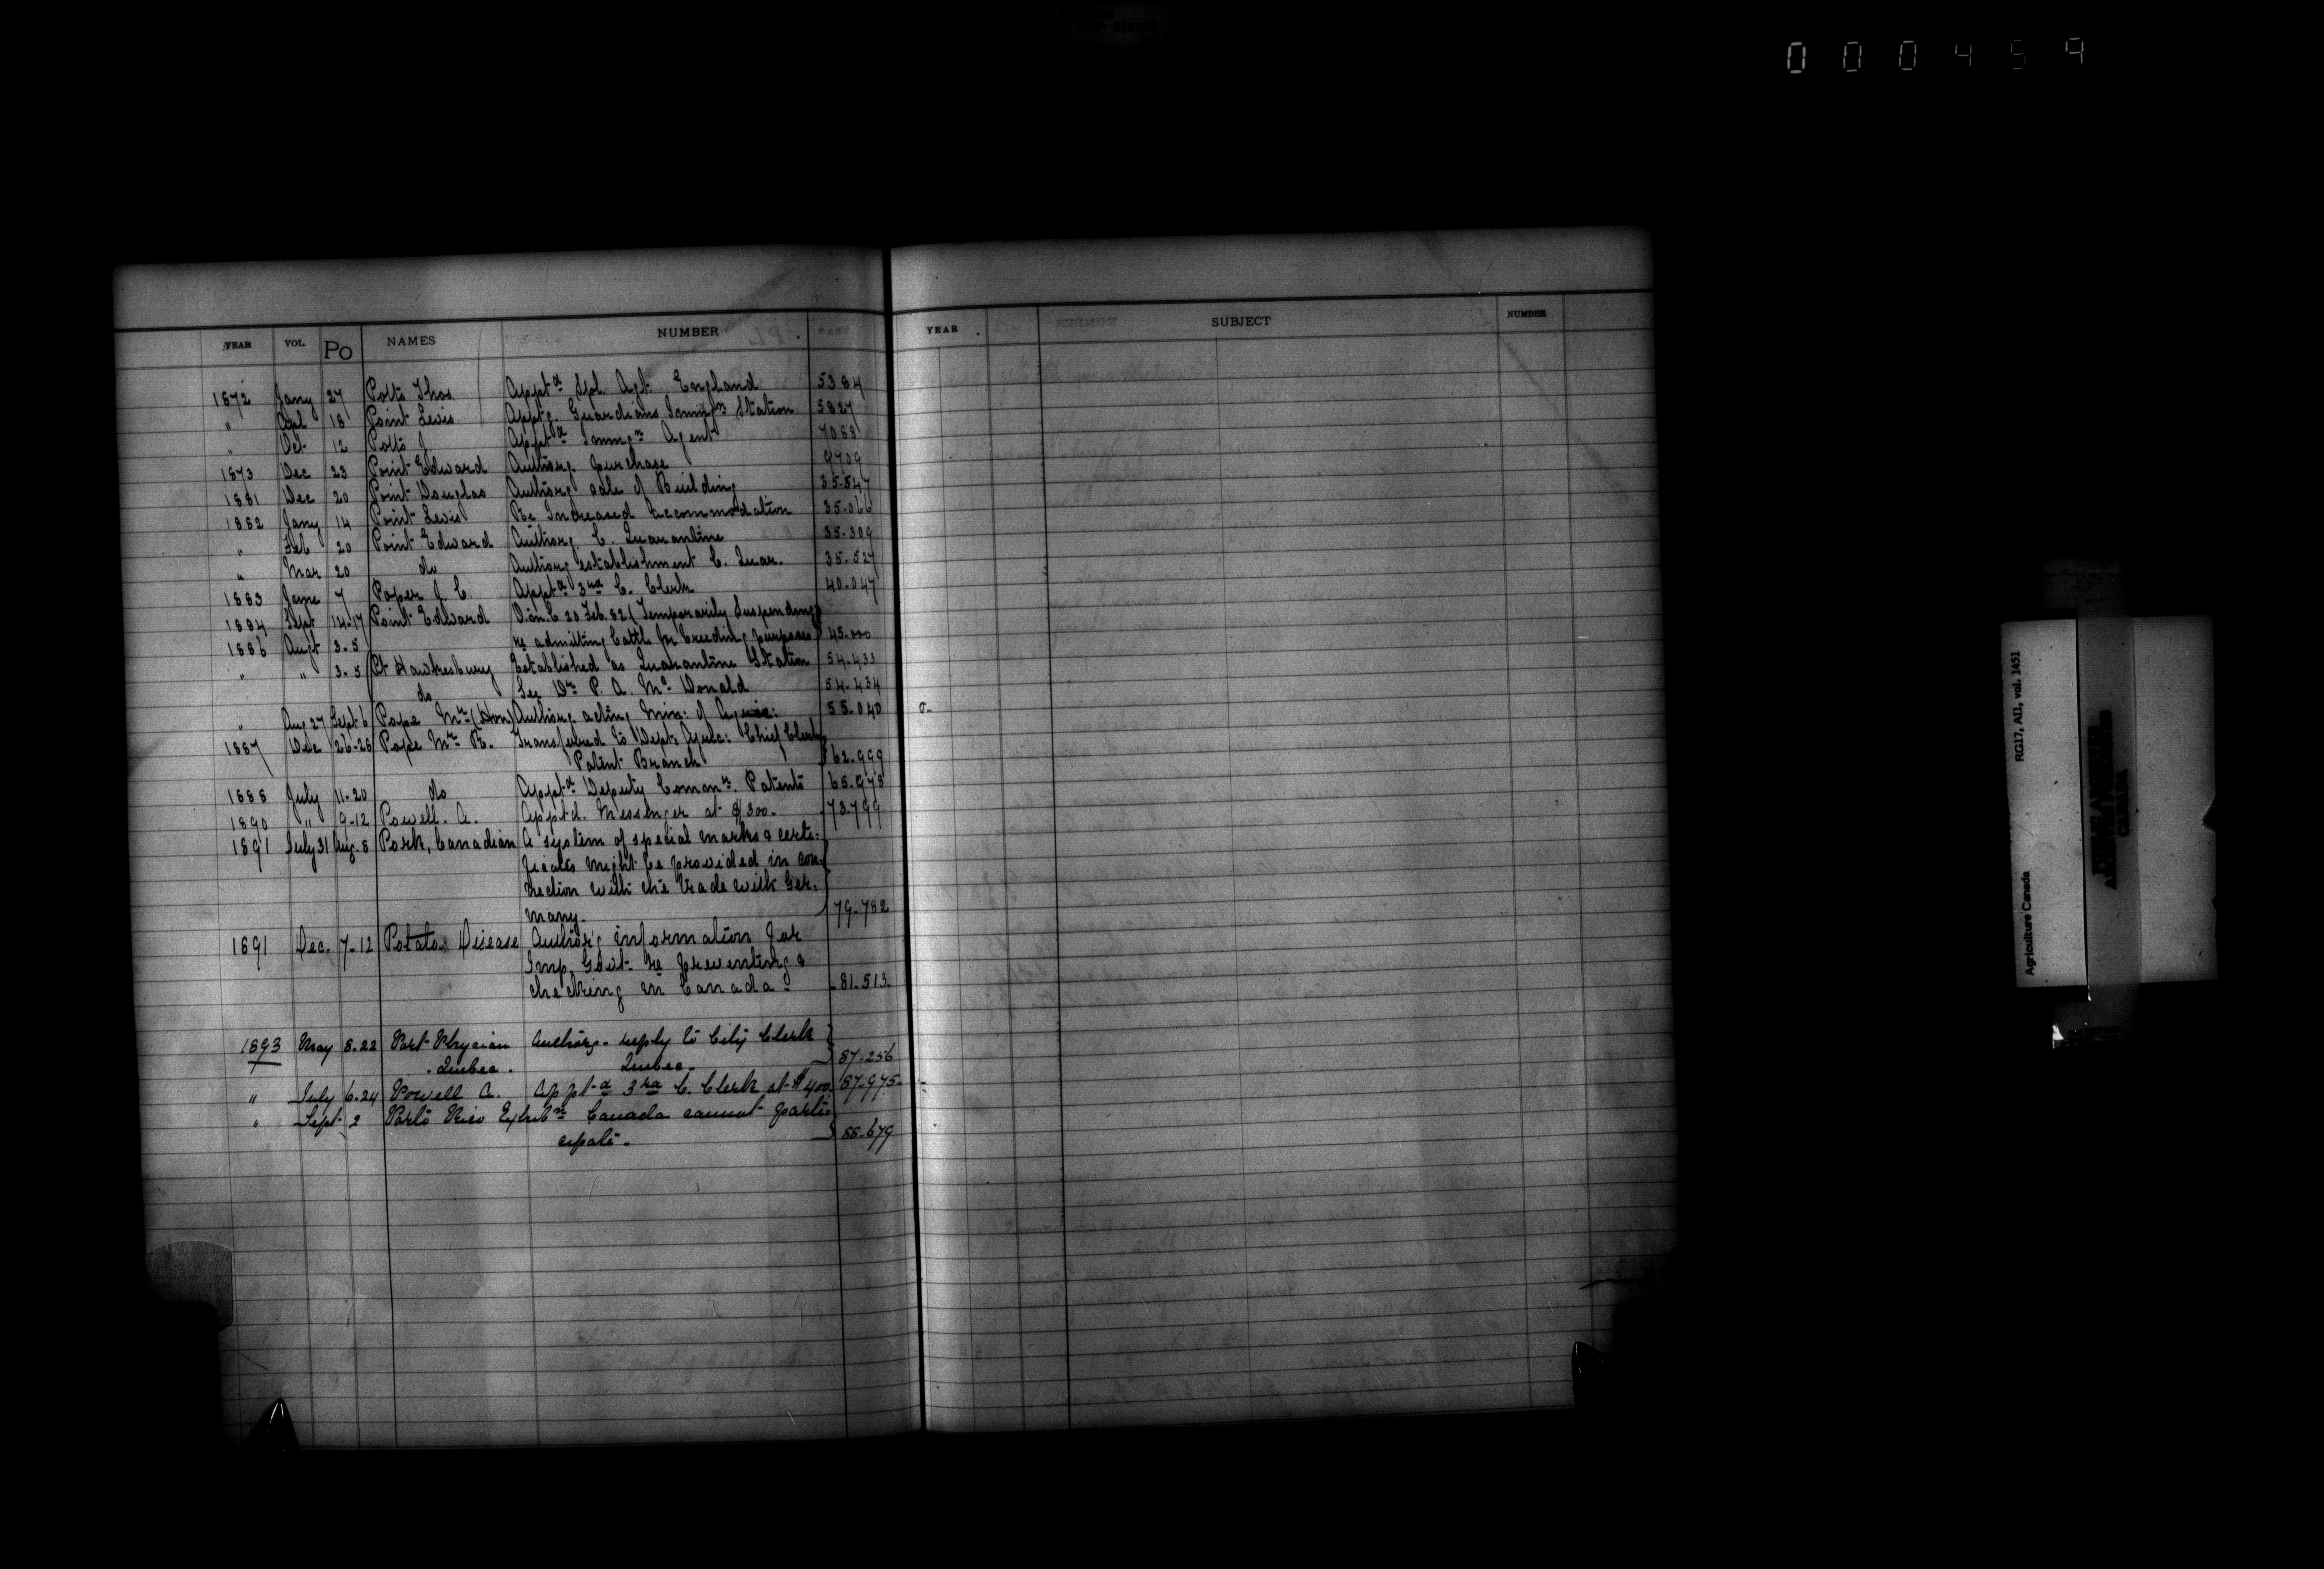 000459
YEAR VOL. Po NAMES NUMBER
1872 Jany 27 Potts Thos. Appt.d Spl. Agt. England 5384
" Apl 18 Point Levis Apptg. Guardians Immign Station 5827
" Oct 12 Potts J. Appt.d Immgn Agent 7088
1873 Dec 23 Point Edward Authorg. purchase 9709
1881 Dec 20 Point Douglas Authorg sale of Building 35.847
1882 Jany 14 Point Levis Re Increased Accommodation 35.066
" Feb 20 Point Edward Authorg. C. Quarantine 35.309
" Mar 20 do Authorg establishment C. Quar. 35.527
1883 June 7 Pope J. C. Apptd 3rd C. Clerk 40.047
1884 Sept 14-17 Point Edward O.in.C 20 Feb. 82 (Temporarily Suspending)
1886 Augt 3-5 re admitting Cattle for breeding purposes 45.000
" " 3-5 Pt Hawkesbury Established as Quarantine Station 54.433
do See Dr. P. A. McDonald 54.434
" Aug 27 Sept 6 Pope Mr (Hon) Authorg. acting Min: of Agric: 55.040
1887 Dec 26-28 Pope Mr R. Transferred to Dept: Agric: Chief Clerk
Patent Branch 62.999
1888 July 11-20 do Apptd Deputy Commr. Patents 65.978
1890 " 9-12 Powell. A. Apptd. Messenger at $300. 73.799
1891 July 31 Aug. 8 Pork, Canadian A system of special marks & certi-
ficates might be provided in con-
nection with the trade with Ger-
many. 79.782
1891 Dec. 7-12 Potatoe Disease Author'g information for
Imp. Govt. re preventing &
checking in Canada 81.513.
1893 May 8.22 Port Physician Authorg. reply to City Clerk
Quebec. Quebec. 87.256
" July 6.24 Powell A. Appt.d 3rd C. Clerk at $400. 87.975.
" Sept. 2 Porto Rico Exhibn Canada cannot parti
cipate. 88.679
YEAR SUBJECT NUMBER
Agriculture Canada
RG17, AII, vol. 1451